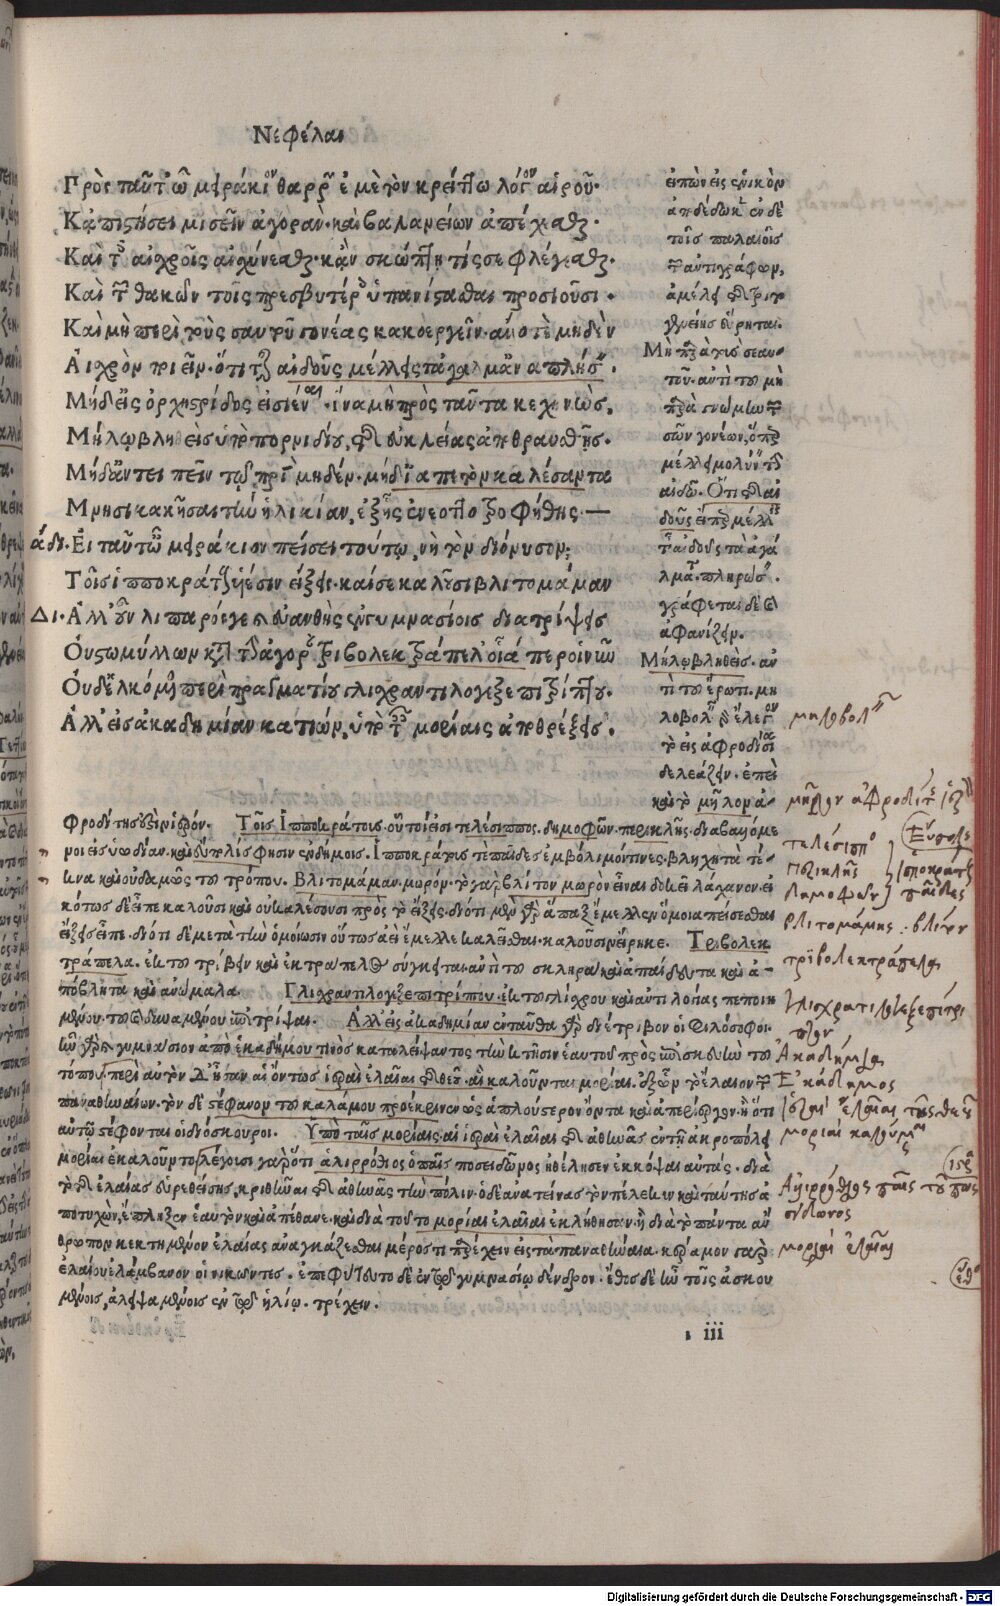 Νεφέλαι
Πρὸς ταῦτ' ὦ μειράκιον θαρρῶν ἐμὲ τὸν κρείττω λόγον αἱροῦ·
Κἀπιστήσει μισεῖν ἀγοράν· καὶ βαλανείων ἀπέχεσθαι·
Καὶ τοῖς αἰσχροῖς αἰσχύνεσθαι· κἂν σκώπτῃ τίς σε φλέγεσθαι·
Καὶ τῶν θακῶν τοῖς πρεσβυτέροις ὑπανίστασθαι προσιοῦσι·
Καὶ μὴ περὶ τοὺς σαυτοῦ γονέας κακοεργεῖν· ἄλλο τὲ μηδὲν
Αἰσχρὸν ποιεῖν· ὅτι τῆς αἰδοῦς μέλλεις τἄγαλμ' ἀναπλήσειν·
Μηδ' εἰς ὀρχηστρίδος εἰσιέναι· ἵνα μὴ πρὸς ταῦτα κεχηνὼς,
Μήλῳ βληθεὶς ὑπὸ πορνιδίου, τῆς εὐκλείας ἀποθραυσθῇς·
Μήδ' ἀντειπεῖν τῷ πατρὶ μηδέν· μήδ' ἰαπετὸν καλέσαντα
Μνησικακῆσαι τὴν ἡλικίαν, ἐξ ἧς ἐνεοττοτροφήθης —
ἄδι· Εἰ ταῦτ' ὦ μειράκιον πείσει τούτῳ, νὴ τὸν διόνυσον;
Τοῖς ἱπποκράτους ὑιέσιν εἴξεις· καί σε καλοῦσι βλιτομάμαν
Δι· Ἀλλ' οὖν λιπαρός γε καὶ εὐανθὴς ἐν γυμνασίοις διατρίψεις
Οὐ στωμύλλων κατὰ τὴν ἀγορὰν τριβολεκτράπελ' οἷά περ οἱ νῦν
Οὐδ' ἑλκόμενος περὶ πραγματίου γλισχραντιλογεξεπιτρίπτου·
Ἀλλ' εἰς ἀκαδημίαν κατιὼν, ὑπὸ ταῖς μορίαις ἀποθρέξεις·
ἐπὼν εἰς ἑνικὸν
ἀπέδωκεν ἐν δὲ
τοῖς παλαιοῖς
τῶν ἀντιγράφων,
Μὴ παρὰ τοῖς σεαυ-
τοῦ· ἀντὶ τοῦ μὴ
παρὰ γνώμην τῶν
σῶν γονέων, ὅπερ
μέλλει μολύνειν τὴν
αἰδῶ· Ὅτι τῆς αἰ
δοῦς εἶπε μέλλεις
τῆς αἰδοῦς τὰ ἀγάλ
λματα πληρώσειν·
γράφεται δὲ καὶ
ἀφανίζειν·
Μήλῳ βληθεὶς· ἀν
τὶ τοῦ ἔρωτι· μη
λοβολεῖν γὰρ ἔλεγον
τὸ εἰς ἀφροδίσια
δελεάζειν· ἐπεὶ
καὶ τὸ μῆλον ἀ-
φροδίτης ἐστιν ἱερόν· Τοῖς Ἱπποκράτους· οὗτοί εἰσι τελέσιππος· δημοφῶν· περικλῆς· διαβαλλόμε
νοι εἰς ὑωδίαν· καὶ εὔπολίς φησιν ἐν δήμοις· Ἱπποκράτους τὲ παῖδες ἐμβόλιμοί τινες· βληχητὰ τέ-
κνα καὶ οὐδαμῶς τοῦ τρόπου· Βλιτομάμαν· μωρόν· τὸ γὰρ βλίτον μωρὸν εἶναι δοκεῖ λάχανον· εἰ
κότως δὲ εἶπε καλοῦσι καὶ οὐ καλέσουσι πρὸς τὸ εἴξεις· διότι μὲν γὰρ ἅπαξ ἔμελλεν ὅμοια πείσεσθαι
εἴξεις εἶπε· διότι δὲ μετὰ τὴν ὁμοίωσιν οὕτως ἀεὶ ἔμελλε καλεῖσθαι· καλοῦσιν εἴρηκε· Τριβολεκ
τράπελα· ἐκ τοῦ τρίβειν καὶ ἐκτραπέλου σύγκειται· ἀντὶ τοῦ σκληρὰ καὶ ἀπαίδευτα καὶ ἀ-
πόβλητα καὶ ἀνώμαλα· Γλισχραντιλογεξεπιτρίπτου· ἐκ τοῦ γλίσχρου καὶ ἀντιλογίας πεποιη
μένου· τοῦ δυναμένου ἐπιτρίψαι· Ἀλλ' εἰς ἀκαδημίαν ἐνταῦθα γὰρ διέτριβον οἱ φιλόσοφοι·
ἦν γὰρ γυμνάσιον ἀπὸ ἑκαδήμου τινὸς καταλείψαντος τὴν κτῆσιν ἑαυτοῦ πρὸς ἐπισκευὴν τοῦ
τόπου· περὶ αὐτὸν δὲ ἦσαν αἱ ὄντως ἱεραὶ ἐλαῖαι τῆς θεοῦ· αἳ καλοῦνται μορίαι· ἐξ ὧν τὸ ἔλαιον τῶν
παναθηναίων· τὸν δὲ στέφανον τοῦ καλάμου προέκρινεν ὡς ἁπλούστερον ὄντα καὶ ἀπερίεργον· ἢ ὅτι
αὐτῷ στέφονται οἱ διόσκουροι· Ὑπὸ ταῖς μορίαις· αἱ ἱεραὶ ἐλαῖαι τῆς ἀθηνᾶς ἐν τῇ ἀκροπόλει
μορίαι ἐκαλοῦντο· λέγουσι γὰρ ὅτι ἁλιρρόθιος ὁ παῖς ποσειδῶνος ἠθέλησεν ἐκκόψαι αὐτάς· διὰ
τὸ τῆς ἐλαίας εὑρεθείσης, κριθῆναι τῆς ἀθηνᾶς τὴν πόλιν· ὁ δὲ ἀνατείνας τὸν πέλεκυν καὶ ταύτης ἀ
ποτυχὼν, ἔπληξεν ἑαυτὸν καὶ ἀπέθανε· καὶ διὰ τοῦτο μορίαι ἐλαῖαι ἐκλήθησαν· ἢ διὰ τὸ πάντα ἄν
θρωπον κεκτημένον ἐλαίας ἀναγκάζεσθαι μέρος τι παρέχειν εἰς τὰ παναθήναια· κέραμον γὰρ
ἐλαίου ἐλάμβανον οἱ νικῶντες· ἐπεφύτευτο δὲ ἐν τῷ γυμνασίῳ δένδρον· ἔθος δὲ ἦν τοῖς ἀσκου
μένοις, ἀλειψαμένοις ἐν τῷ ἡλίῳ· τρέχειν·
iii
μηλοβολεῖν
μῆλον ἀφροδίτης
Εὔπολις
τελέσιππος
Περικλῆς
Δημοφῶν
ἱπποκράτους
παῖδες
βλιτομάμας
τριβολεκτράπελα
γλισχραντιλογεξεπιτρί
πτου
Ἀκαδημία
Ἑκάδημος
ἱεραὶ ἐλαῖαι τῆς θεοῦ
μορίαι καλούμεναι
Ἁλιρρόθιος παῖς τοῦ ποσ
ειδῶνος
μορίαι ἐλαῖαι
Digitalisierung gefördert durch die Deutsche Forschungsgemeinschaft - DFG